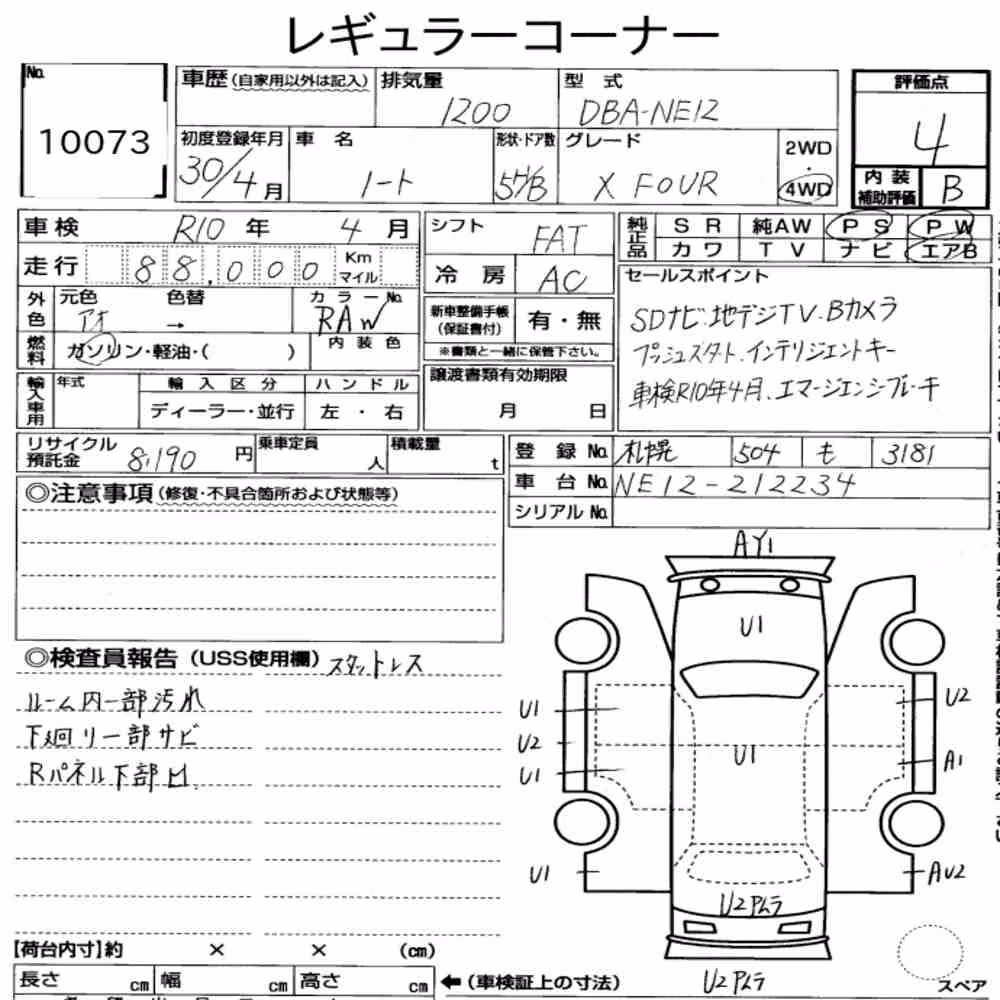 レギュラーコーナー
No. 10073
車歴(自家用以外は記入) 排気量 1200 型式 DBA-NE12
初度登録年月 30/4月 車名 ノート 形状・ドア数 5H/B グレード X FOUR 2WD・4WD
評価点 4
内装補助評価 B
車検 R10年 4月
走行 88,000 Km マイル
シフト FAT
冷房 AC
純正品 SR 純AW PS PW
カワ TV ナビ エアB
外色 元色 アオ 色替 → カラーNo. RAW
燃料 ガソリン・軽油・( ) 内装色
新車整備手帳(保証書付) 有・無
※書類と一緒に保管下さい。
セールスポイント
SDナビ.地デジTV.Bカメラ
プッシュスタート.インテリジェントキー
車検R10年4月、エマージェンシブレーキ
輸入車用 年式 輸入区分 ハンドル
ディーラー・並行 左・右
譲渡書類有効期限
月 日
リサイクル預託金 8,190円 乗車定員 人 積載量 t
登録No. 札幌 504 も 3181
車台No. NE12-212234
シリアルNo.
◎注意事項(修復・不具合箇所および状態等)
◎検査員報告(USS使用欄) スタットレス
ルーム内一部汚れ
下廻リ一部サビ
Rパネル下部凹
AY1
U1
U1 U2
U2 U1
U1 A1
U1 AU2
U2Pムラ
【荷台内寸】約 × × (cm)
長さ cm 幅 cm 高さ cm ←(車検証上の寸法) U2Pムラ
スペア